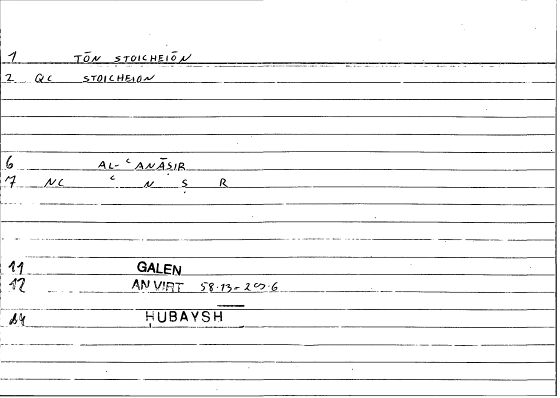 1 TŌN STOICHEIŌN
2 QC STOICHEION
6 AL-ʿANĀṢIR
7 NC ʿ N Ṣ R
11 GALEN
12 AN VIRT 58.13-
14 ḤUBAYSH